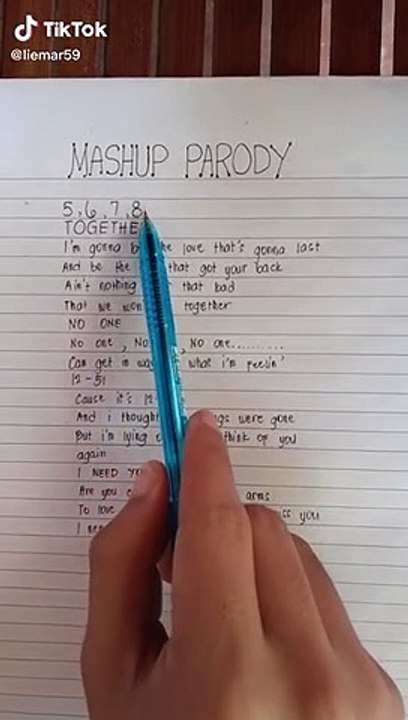 TikTok
@liemar59
MASHUP PARODY
5, 6, 7, 8
TOGETHE
I'm gonna b the love that's gonna last
And be the that got your back
Ain't nothing that bad
That we won together
NO ONE
No one , No , No one..........
Can get in way what i'm feelin'
12-51
Cause it's 12
And i thought gs were gone
But i'm lying think of you
again
I NEED YO
Are you arms
To love ss you
I nee